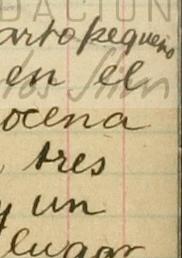 DACIÓN
arto pequeño
en el
ocena
tres
y un
lugar